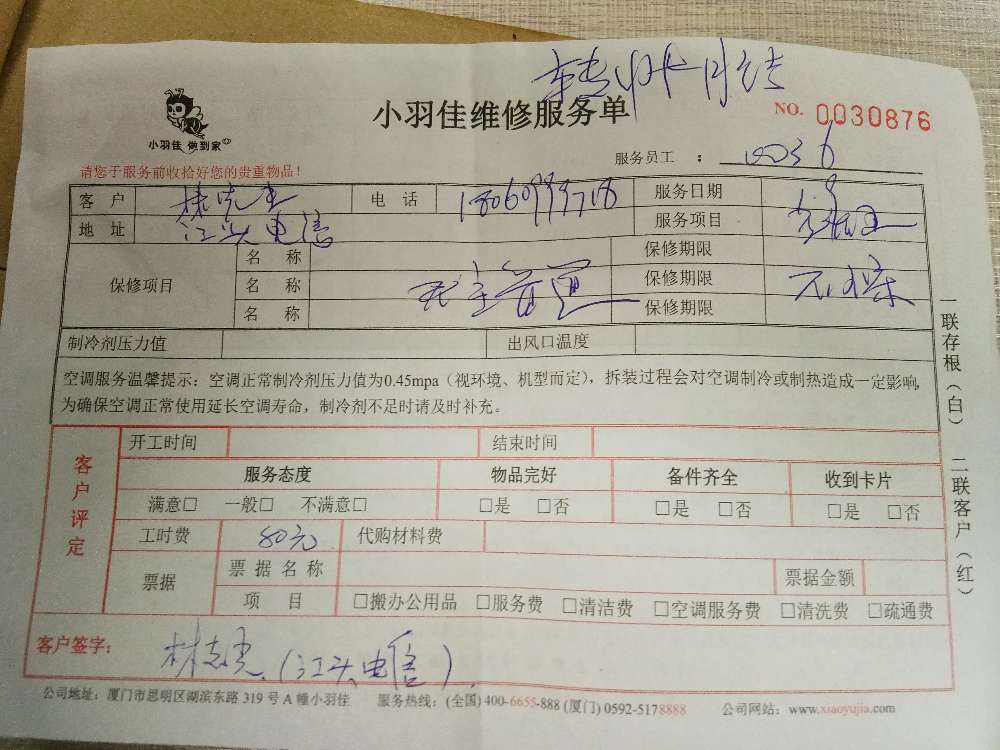 小羽佳 做到家
小羽佳维修服务单
NO. 0030876
请您于服务前收拾好您的贵重物品！
服务员工 ：
客 户
电 话
服务日期
地 址 江头电信
服务项目
保修项目
名 称 保修期限
名 称 保修期限
名 称 保修期限
制冷剂压力值 出风口温度
空调服务温馨提示：空调正常制冷剂压力值为0.45mpa（视环境、机型而定），拆装过程会对空调制冷或制热造成一定影响,
为确保空调正常使用延长空调寿命，制冷剂不足时请及时补充。
客户评定
开工时间 结束时间
服务态度 物品完好 备件齐全 收到卡片
满意□ 一般□ 不满意□ □是 □否 □是 □否 □是 □否
工时费 80元 代购材料费
票据
票据名称 票据金额
项 目 □搬办公用品 □服务费 □清洁费 □空调服务费 □清洗费 □疏通费
客户签字： (江头电信)
公司地址：厦门市思明区湖滨东路 319 号 A 幢小羽佳 服务热线：(全国) 400-6655-888 (厦门) 0592-5178888 公司网站：www.xiaoyujia.com
一联存根（白） 二联客户（红）